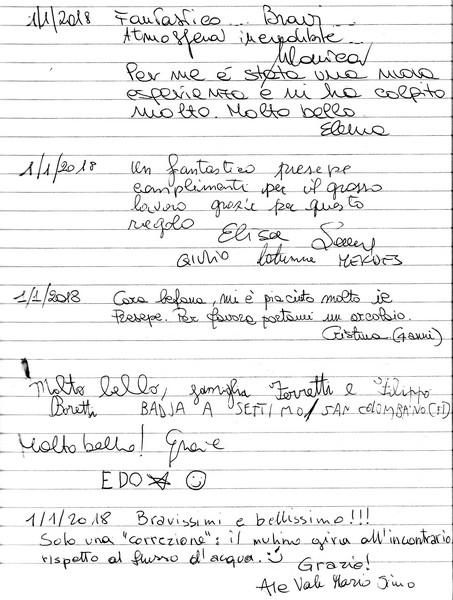 1/1/2018 Fantastico... Bravi...
Atmosfera incredibile...
Monica
Per me è stata una nova
esperienza e mi ha colpito
molto. Molto bello
Elena
1/1/2018 Un fantastico presepe
complimenti per il grosso
lavoro grazie per questo
regolo
Elisa
GIULIO MERDES
1/1/2018 Cara befana, mi è piaciuto molto il
Presepe. Per favore portami un arcolaio.
Cristina (Ganni)
Molto bello, famiglia Ferretti e Filippo
Boretti BADIA A SETTIMO/SAN COLOMBANO (FI)
Molto bello! Grazie
EDO
1/1/2018 Bravissimi e bellissimo!!!
Solo una "correzione": il mulino gira all'incontrario
rispetto al flusso d'acqua.
Grazie!
Ale Vale Mario Simo